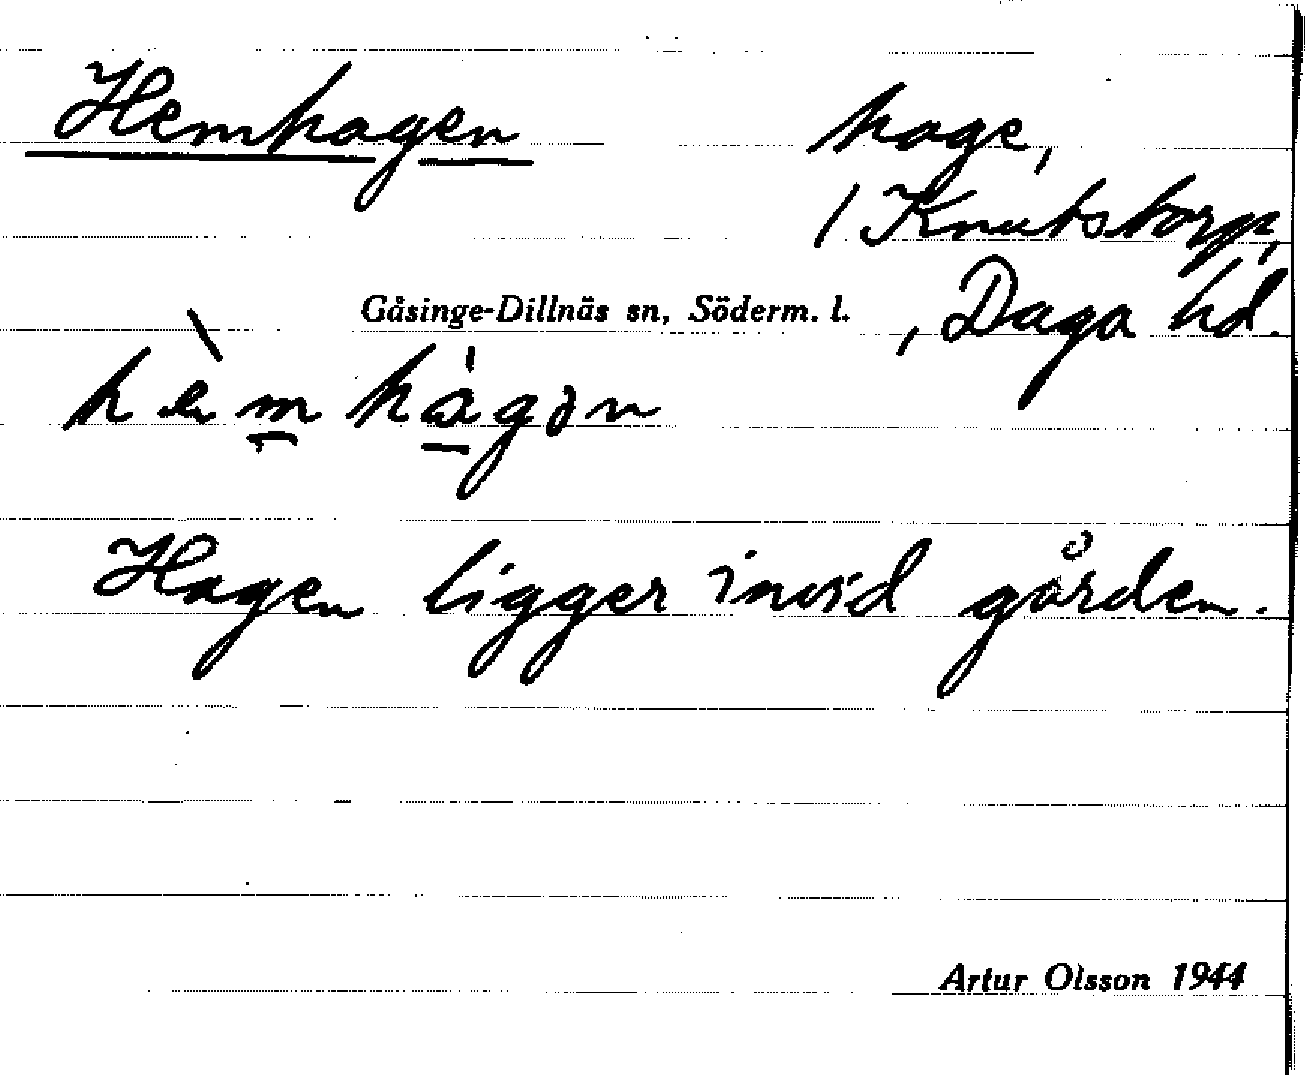 Hemhagen hage,
/ Knutstorp,
Gåsinge-Dillnäs sn, Söderm. l. , Daga hd.
Hagen ligger invid gården.
Artur Olsson 1944